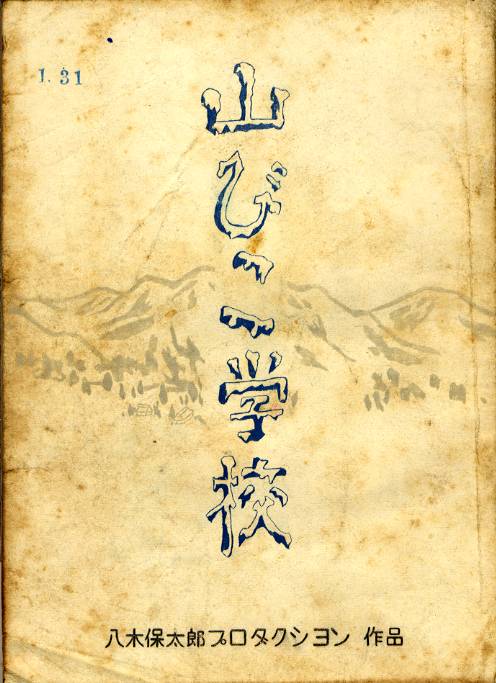 1.31
山びこ学校
八木保太郎プロダクション 作品